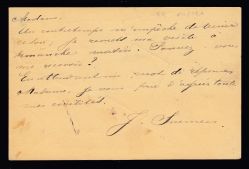 Madame,
Un contretemps m'empêche de venir
je remets ma visite à
dimanche matin. Pouvez vous
me recevoir ?
En attendant un mot de réponse
Madame, je vous prie d'agréer toute
mes civilités.
J.